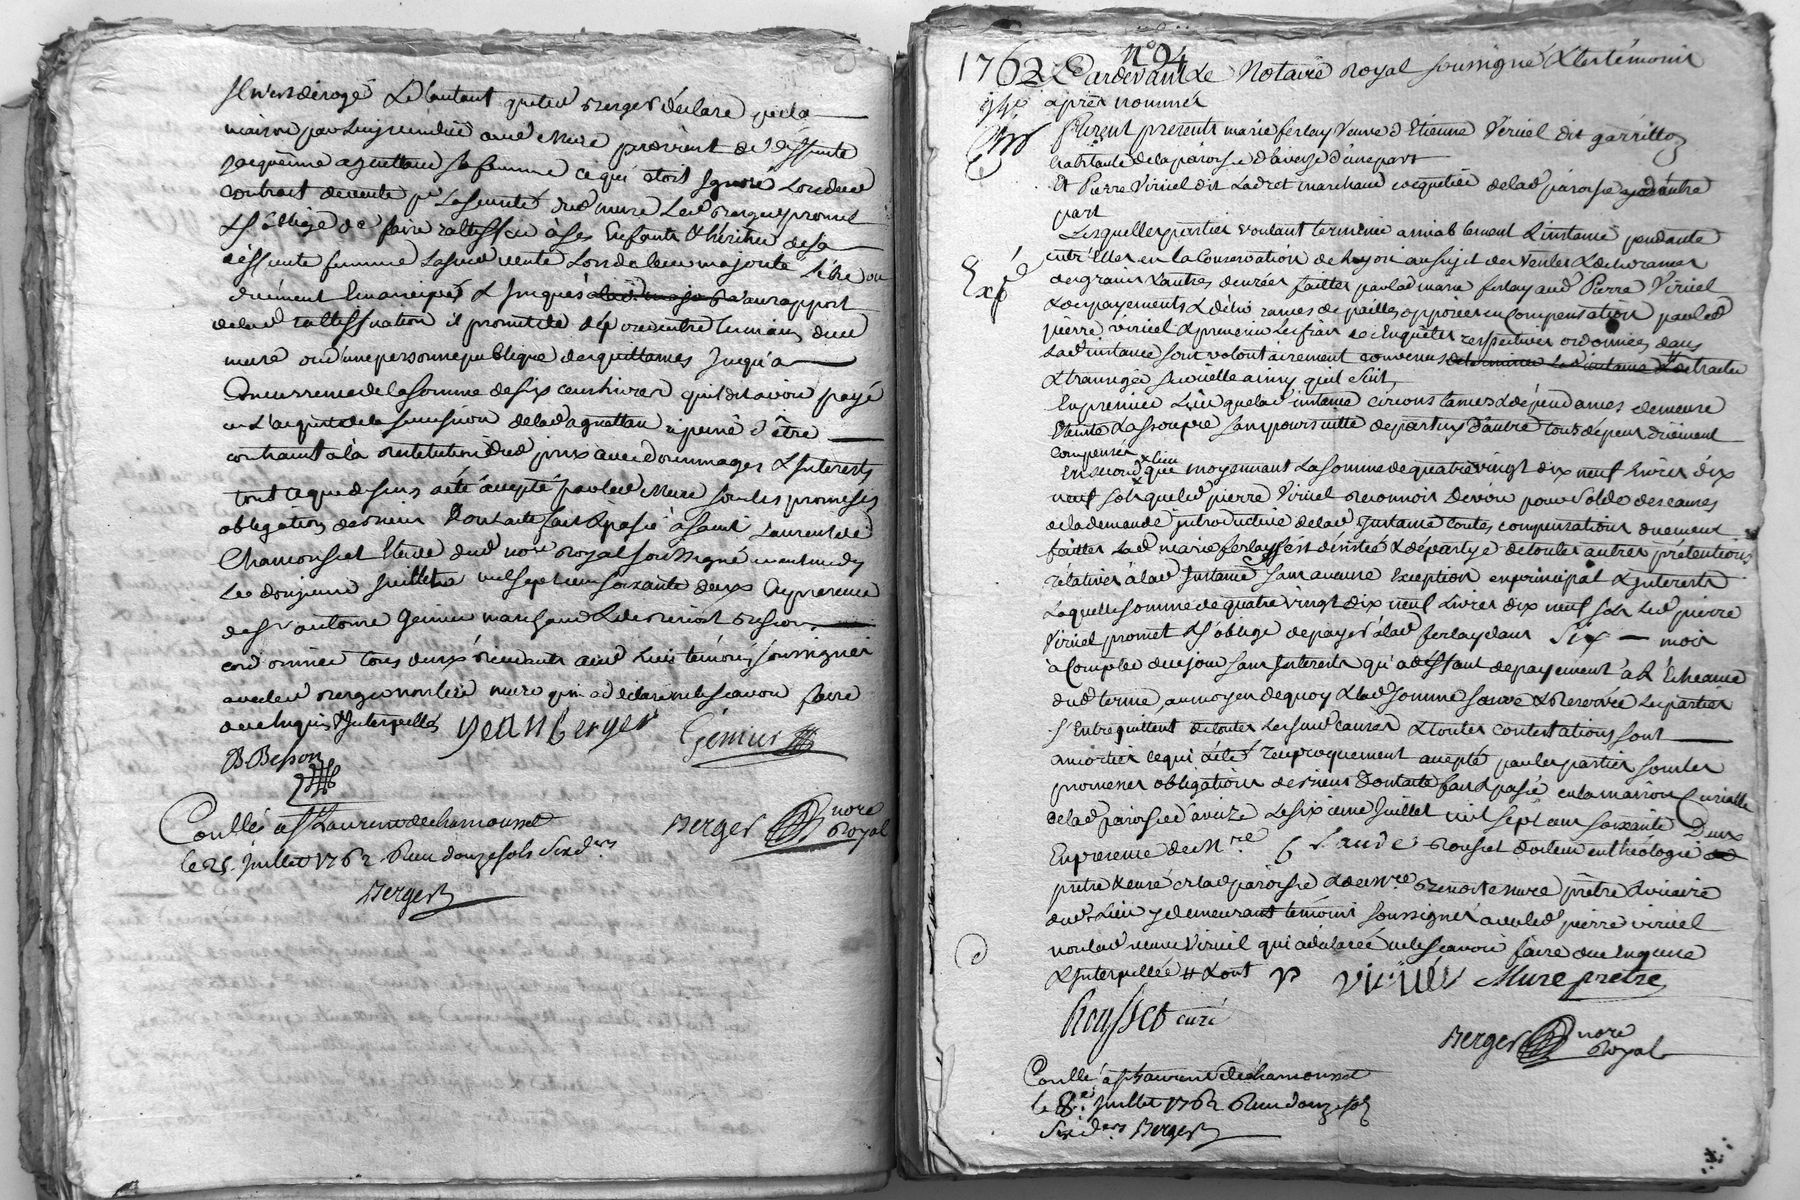 maison par luy vendue aud. Mure provient de déffunte
sa femme ce qui étoit ignoré Lors dud
contrat de vente pr. La seureté dud mure Led berger promet
& s'oblige de faire rattiffier à ses Enfants & héritiers de sa
déffunte femme Lasusd vente Lors de leur majorité
& jusques a raport
de lad rattiffication il promet de
mure ou d'une personne publique des quittances jusqu'a
Concurrence de la somme de six cens livres qu'il dit avoir payé
en L'acquit de la succession de lad à peine d'être
contraint à la restitution dud prix avec dommages & Interests
tout ce que dessus a été accepté par led Mure sous les promesses
obligations Dont acte fait & passé à saint Laurent de
Chamousset Etude dud nore Royal soussigné
Le douzieme juillet mil sept cens soixante deux En presence
de sr antoine Gémier marchand & de benoist besson
cordonnier tous deux témoins soussignés
avec led berger non led mure qui a declaré ne le scavoir faire
de ce Enquis & Interpellé
jean berger Gémier
B Besson
Conllé à St Laurent de chamousset
le 25. juillet 1762 Reçu douze sols six ders
Berger
Berger nore
Royal
1762 no 94
Pardevant Le Notaire Royal soussigné & les témoins
après nommés
furent presents marie ferlay veuve d'Etienne Viriel dit garritton
habitante de la paroisse d'aveize d'une part
Et Pierre Viriel dit Ladret marchand coquetier de lad paroisse d'autre
part
Lesquelles parties voulant terminer amiablement L'instance pendante
entr'Elles en la Conservation de Lyon au sujet des ventes & délivrances
Exp.d
de grains & autres denrées faittes par lad marie ferlay aud Pierre Viriel
& des payements & délivrances de pailles opposées en Compensation par led
pierre viriel & prevenir Les frais des Enquêtes respectives ordonnées dans
Lad instance sont volontairement convenus
& transigé sur icelle ainsy qu'il suit,
En premier Lieu que lad instance circonstances & dépendances demeure
Eteinte & assoupie sans poursuitte de part ny d'autre tous dépens dûement
compensés
En second lieu que moyennant La somme de quatre vingt dix neuf livres dix
neuf sols que led pierre Viriel reconnoit devoir pour solde des causes
de la demande introductive de lad Instance toutes compensations dûement
faittes Lad marie ferlay s'est désistée & départye de toutes autres prétentions
rélatives à lad Instance sans aucune Exception en principal & Interests
Laquelle somme de quatre vingt dix neuf Livres dix neuf sols Led pierre
Viriel promet & s'oblige de payer à lad ferlay dans Six mois
à Compter de ce jour sans Interests qu'a déffaut de payement à L'Echeance
dud terme, au moyen de quoy & lad somme sauve & Reservée Les parties
s'Entrequittent de toutes Les susd causes & toutes contestations sont
amorties ce qui a été reciproquement accepté par les parties sous les
promesses obligations Dont acte fait & passé en la maison Curialle
de lad paroisse d'aveize Le sixieme Juillet mil sept cens soixante Deux
En presence de Mre Claude Rousset docteur en théologie
prêtre & curé de lad paroisse & de Mre Benoit mure prêtre & vicaire
dud. Lieu y demeurant témoins soussignés avec led pierre viriel
non lad veuve Viriel qui a déclaré ne le scavoir faire de ce Enquise
& Interpellée
Mure prêtre
Rousset curé
Berger nore
Royal
Conllé à St Laurent de chamousset
le 8.e Juillet 1762 Reçu douze sols
six ders Berger